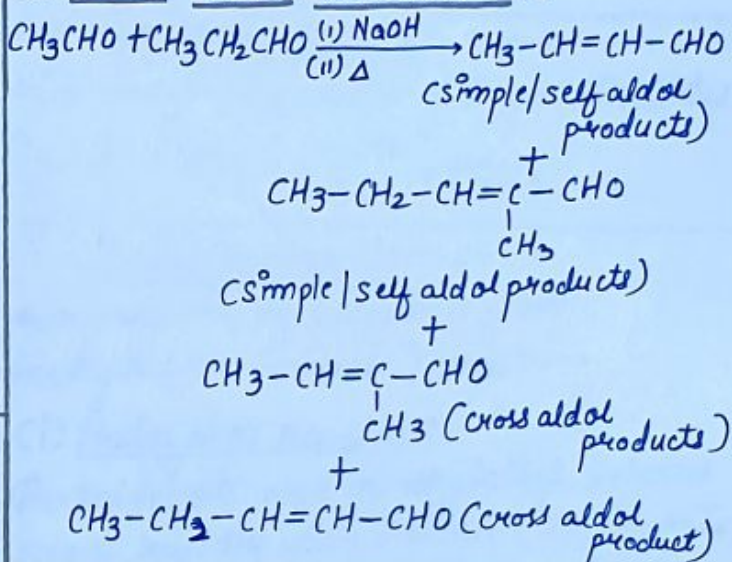 CH3CHO + CH3CH2CHO (i) NaOH (ii) Δ → CH3-CH=CH-CHO
(simple/self aldol
products)
+
CH3-CH2-CH=C-CHO
|
CH3
(simple/self aldol products)
+
CH3-CH=C-CHO
|
CH3 (cross aldol
products)
+
CH3-CH2-CH=CH-CHO (cross aldol
product)